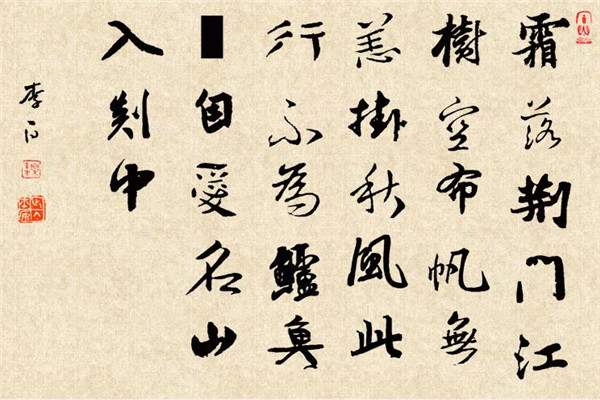 霜落荆門江
樹空布帆無
恙掛秋風此
行不為鱸魚
自愛名山
入剡中
李白